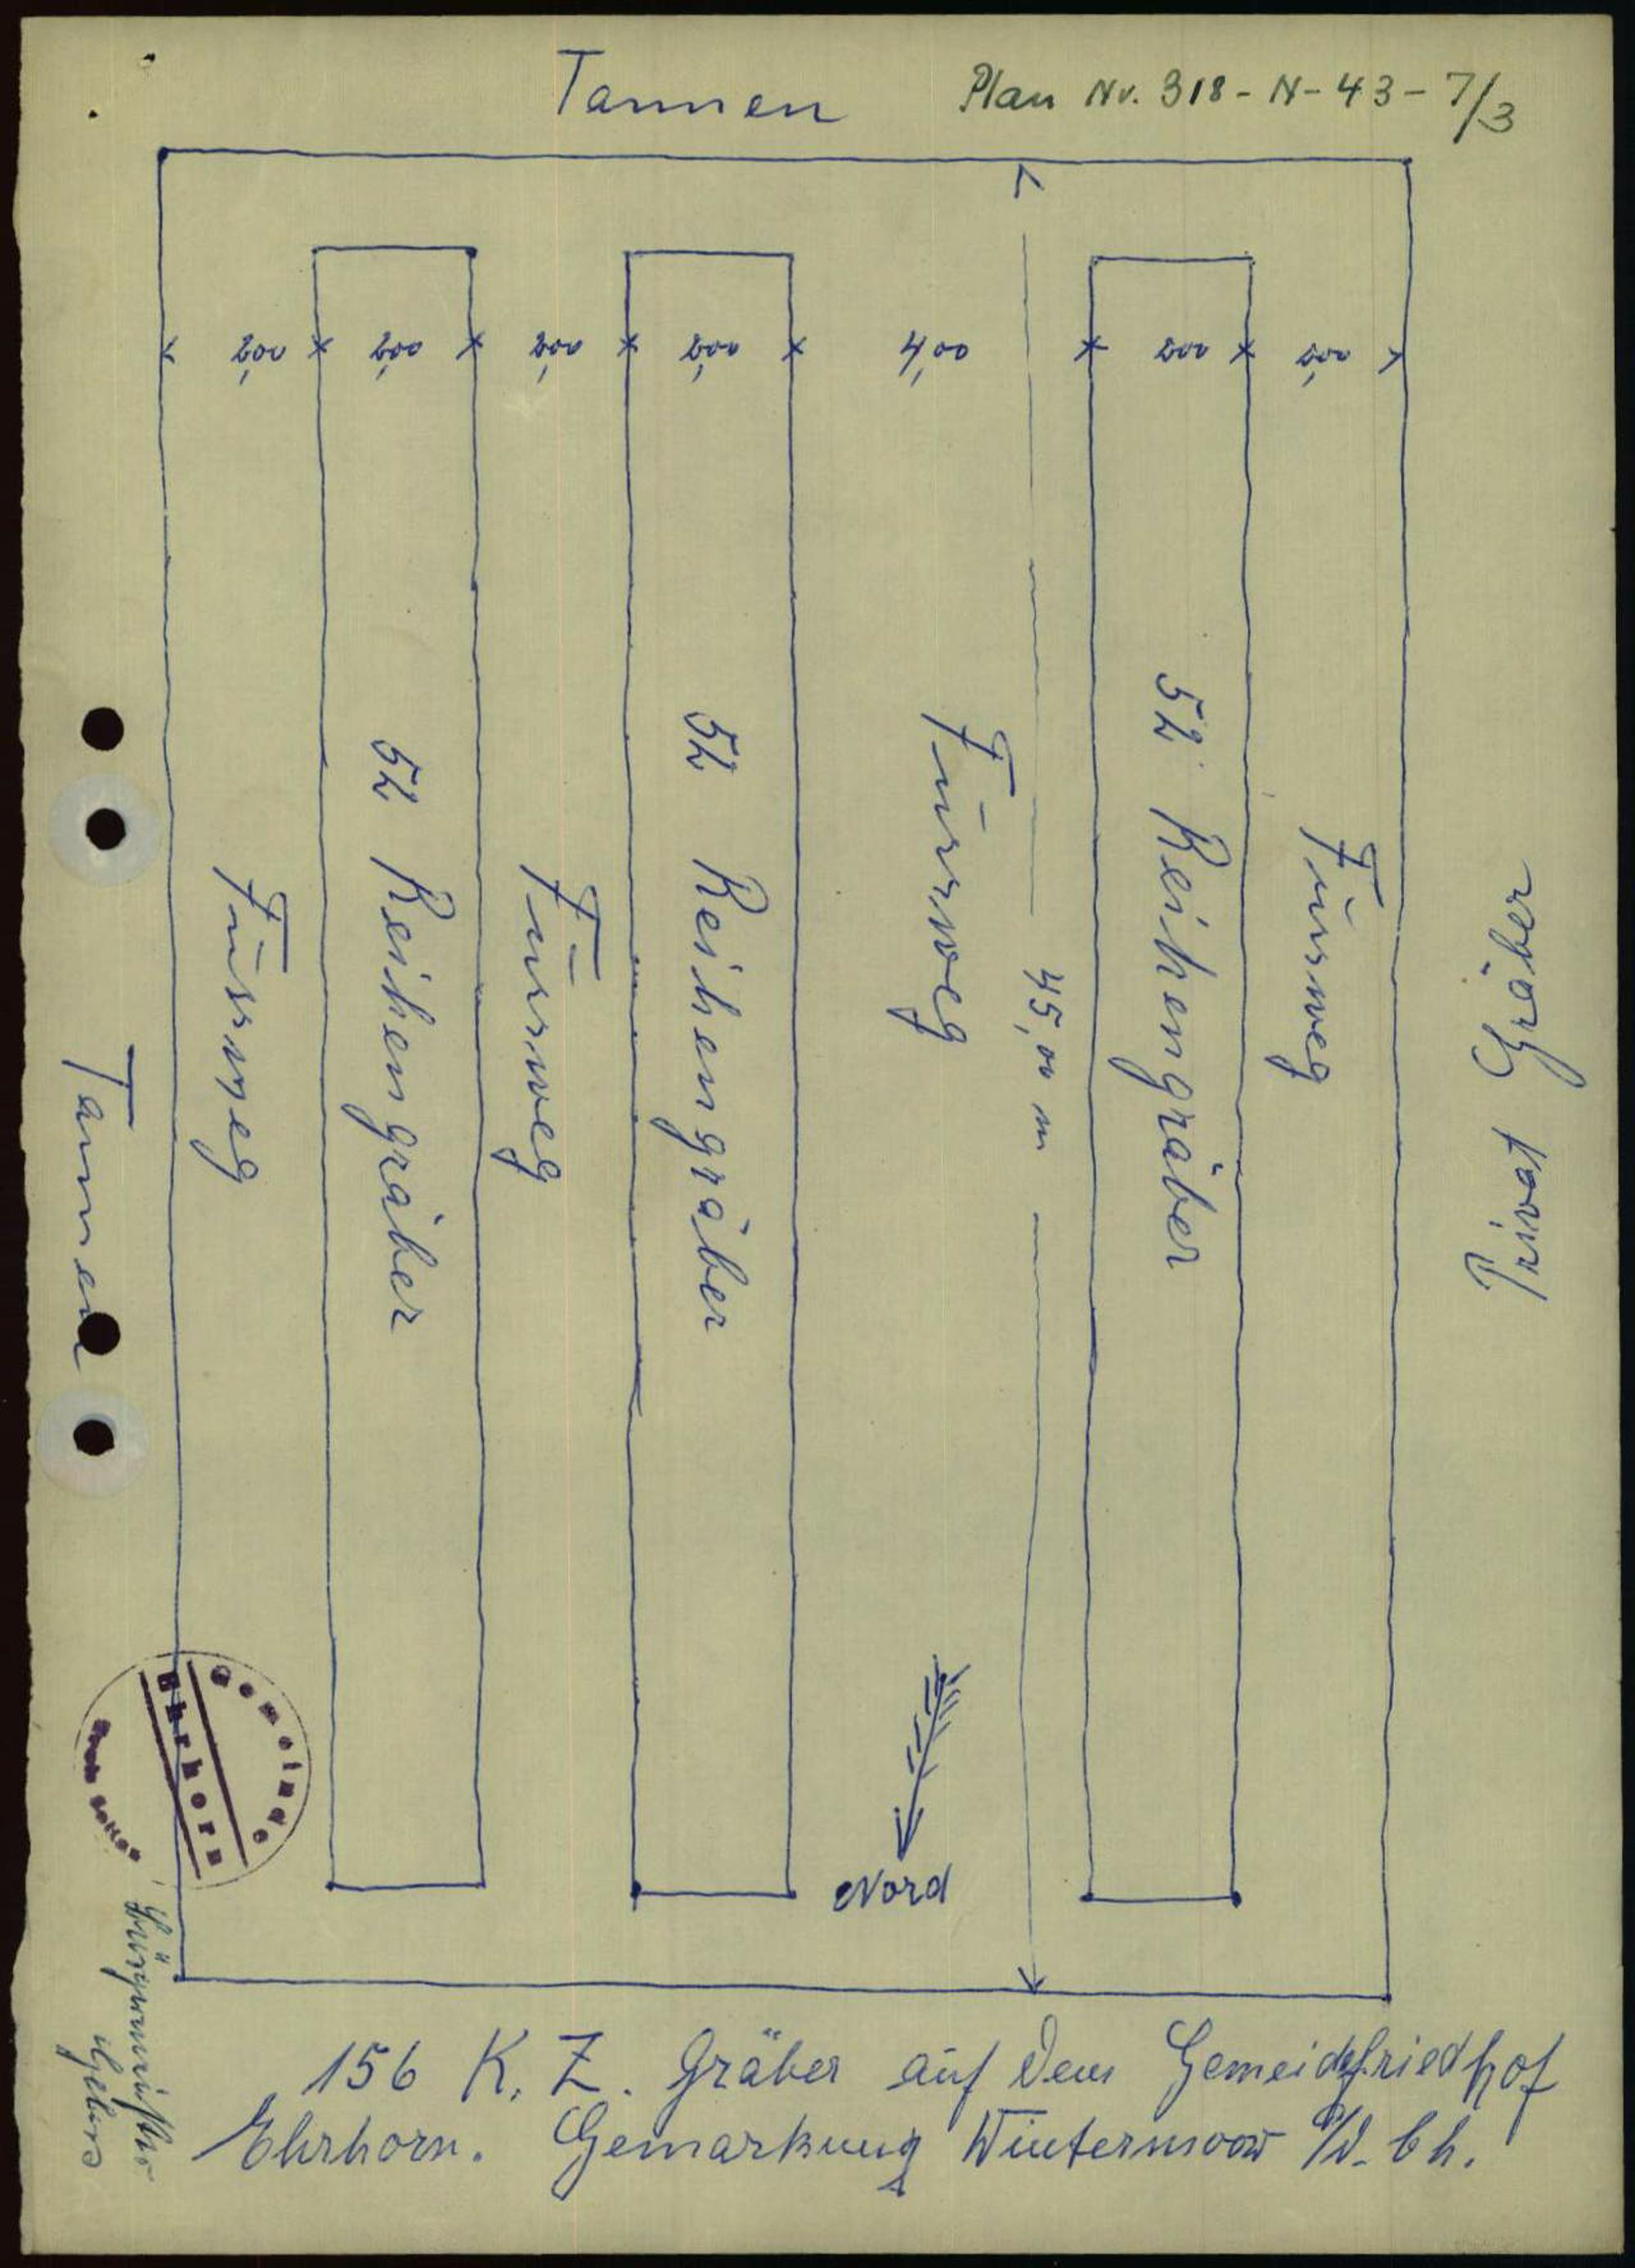 Tannen
Plan Nr. 318-N-43-7/3
2,00 2,00 2,00 2,00 4,00 2,00 2,00
Fussweg
52 Reihengräber
Fussweg
52 Reihengräber
Fussweg
45,00 m
52 Reihengräber
Fussweg
Privat Gräber
Tannen
Nord
Gemeinde
Ehrhorn
Bürgermeister
156 K. Z. Gräber auf dem Gemeidefriedhof
Ehrhorn. Gemarkung Wintermoor